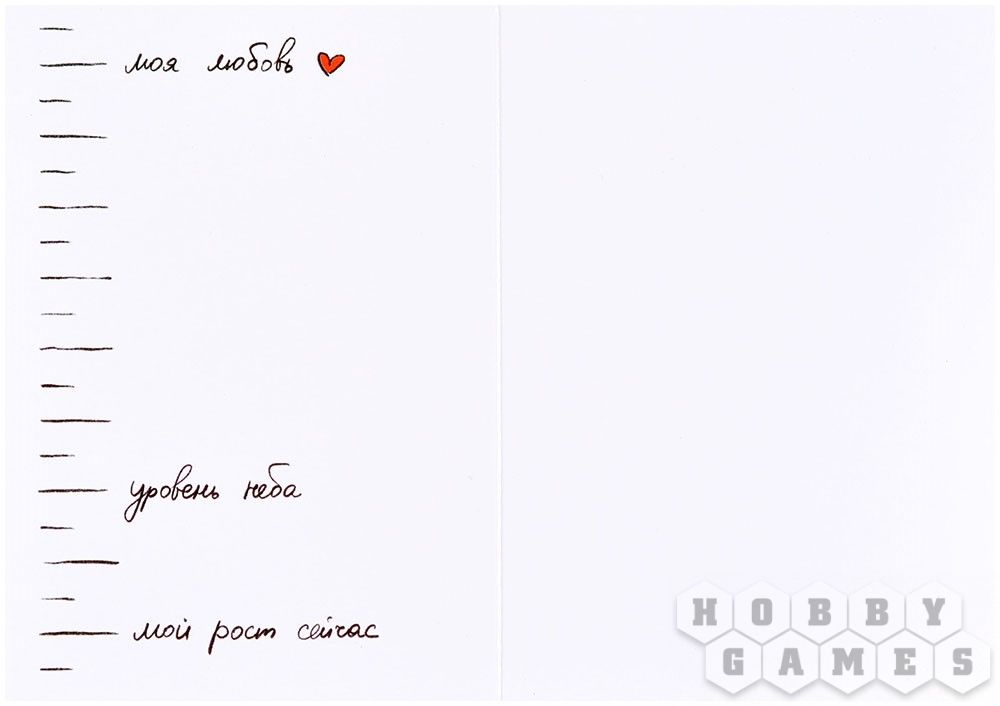 моя любовь
уровень неба
мой рост сейчас
HOBBY
GAMES